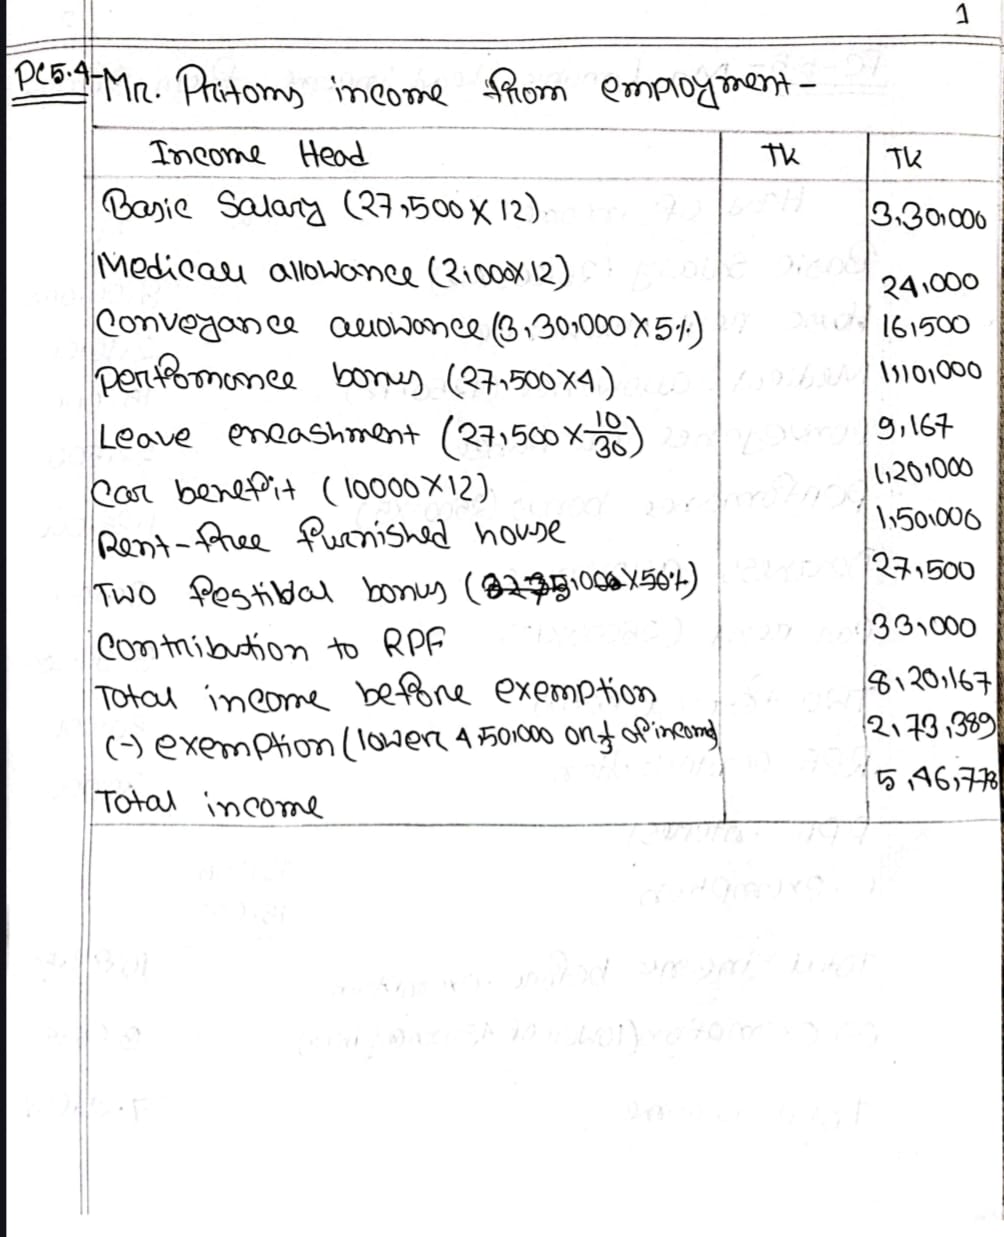 1
PC5.4-Mr. Pritoms income from employment-
Income Head Tk Tk
Basic Salary (27,500 X 12) 3,30,000
Medical allowance (2,000X12) 24,000
Conveyance allowance (3,30,000 X 5%) 16,500
Perfomance bonus (27,500X4) 1,10,000
Leave encashment (27,500 X 10/30) 9,167
Car benefit (10000X12) 1,20,000
Rent-free furnished house 1,50,000
Two festibal bonus ( X50%) 27,500
Contribution to RPF 33,000
Total income before exemption 8,20,167
(-) exemption (lower 4,50,000 or 1/3 of income) 2,73,389
Total income 5,46,778